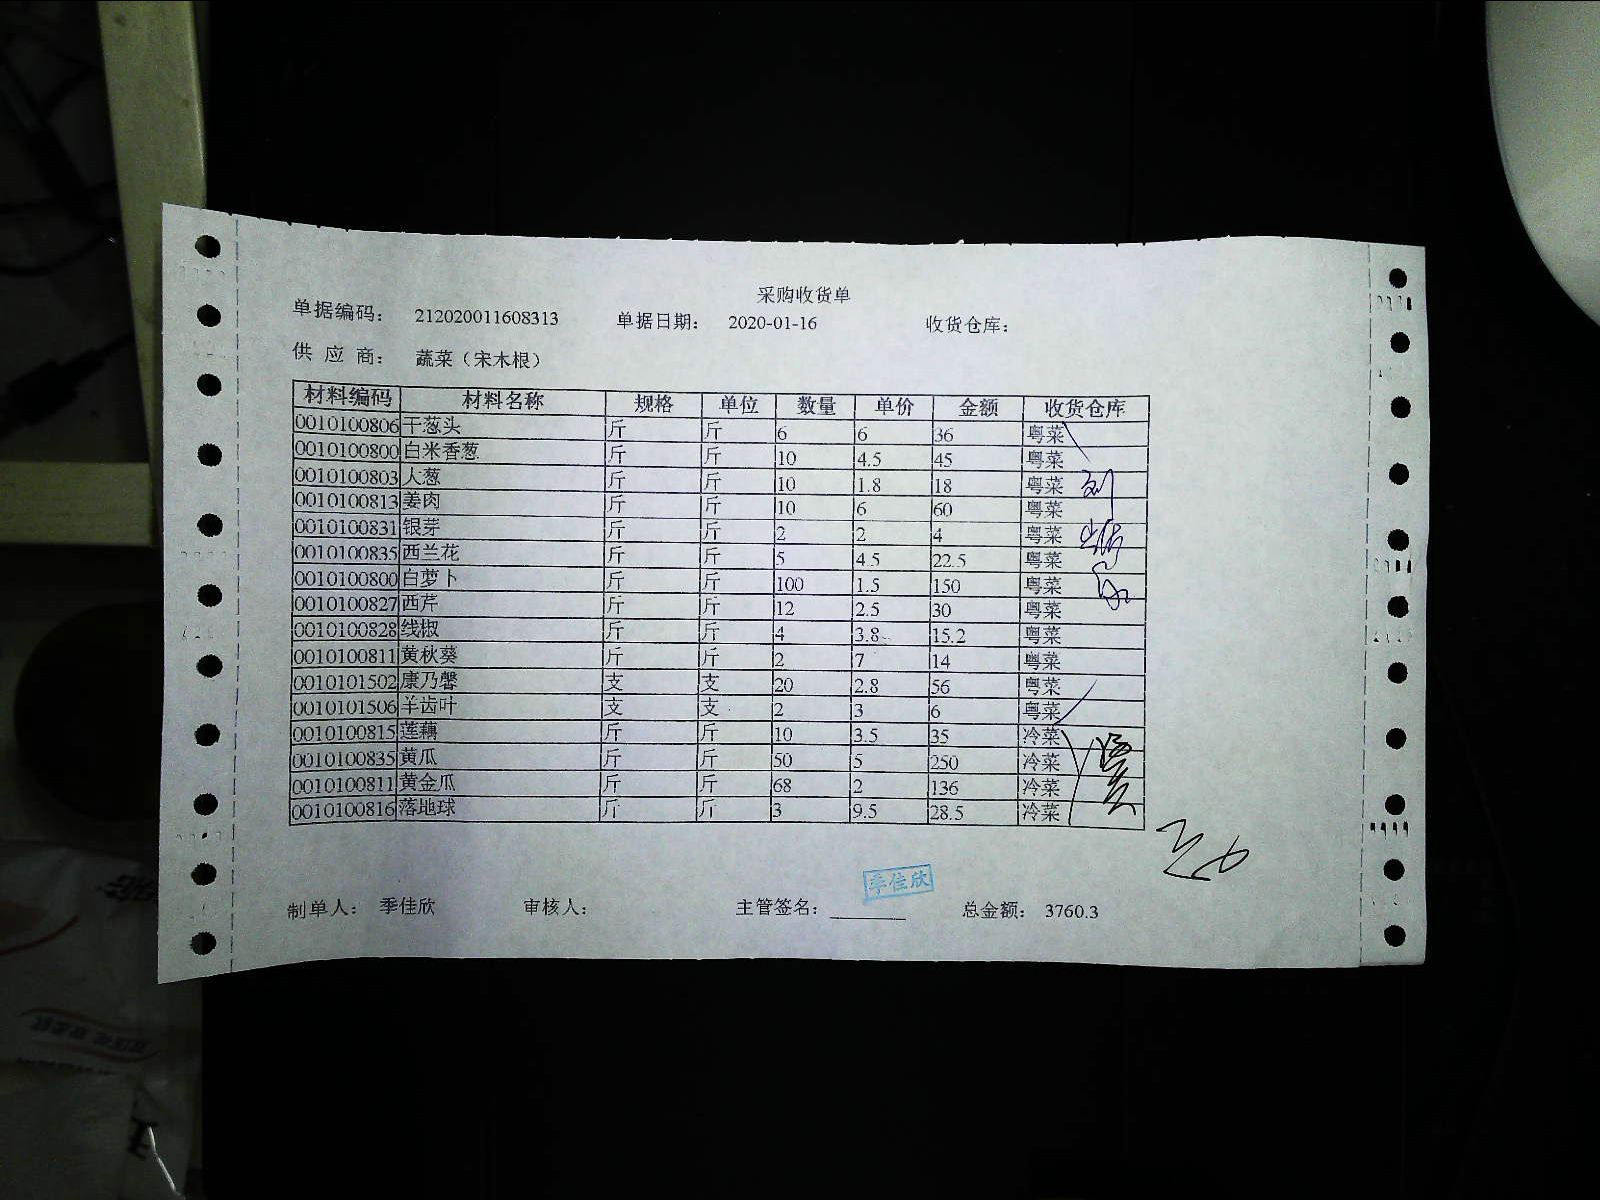 采购收货单
单据编码： 212020011608313 单据日期： 2020-01-16 收货仓库：
供 应 商： 蔬菜（宋木根）
材料编码 材料名称 规格 单位 数量 单价 金额 收货仓库
0010100806 干葱头 斤 斤 6 6 36 粤菜
0010100800 白米香葱 斤 斤 10 4.5 45 粤菜
0010100803 大葱 斤 斤 10 1.8 18 粤菜
0010100813 姜肉 斤 斤 10 6 60 粤菜
0010100831 银芽 斤 斤 2 2 4 粤菜
0010100835 西兰花 斤 斤 5 4.5 22.5 粤菜
0010100800 白萝卜 斤 斤 100 1.5 150 粤菜
0010100827 西芹 斤 斤 12 2.5 30 粤菜
0010100828 线椒 斤 斤 4 3.8 15.2 粤菜
0010100811 黄秋葵 斤 斤 2 7 14 粤菜
0010101502 康乃馨 支 支 20 2.8 56 粤菜
0010101506 羊齿叶 支 支 2 3 6 粤菜
0010100815 莲藕 斤 斤 10 3.5 35 冷菜
0010100835 黄瓜 斤 斤 50 5 250 冷菜
0010100811 黄金瓜 斤 斤 68 2 136 冷菜
0010100816 落地球 斤 斤 3 9.5 28.5 冷菜
季佳欣
制单人： 季佳欣 审核人： 主管签名： 总金额： 3760.3